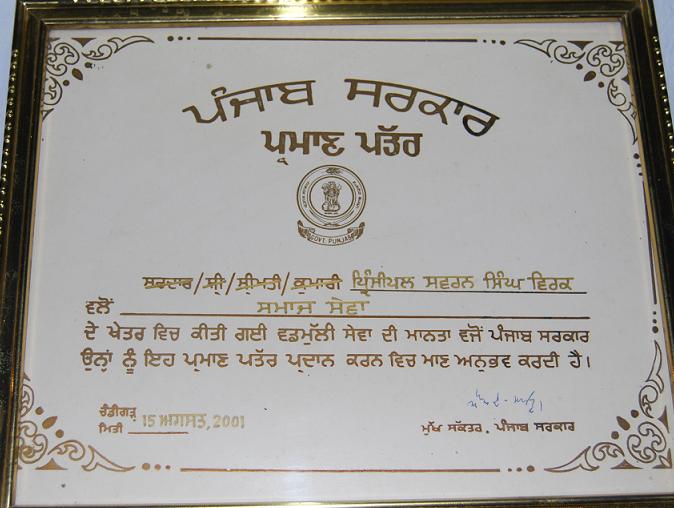 ਪੰਜਾਬ ਸਰਕਾਰ
ਪ੍ਰਮਾਣ ਪੱਤਰ
GOVT. PUNJAB
ਸਰਦਾਰ/ਸ੍ਰੀ/ਸ੍ਰੀਮਤੀ/ਕੁਮਾਰੀ ਪ੍ਰਿੰਸੀਪਲ ਸਵਰਨ ਸਿੰਘ ਵਿਰਕ
ਵਲੋਂ ਸਮਾਜ ਸੇਵਾ
ਦੇ ਖੇਤਰ ਵਿਚ ਕੀਤੀ ਗਈ ਵਡਮੁੱਲੀ ਸੇਵਾ ਦੀ ਮਾਨਤਾ ਵਜੋਂ ਪੰਜਾਬ ਸਰਕਾਰ
ਉਨ੍ਹਾਂ ਨੂੰ ਇਹ ਪ੍ਰਮਾਣ ਪੱਤਰ ਪ੍ਰਦਾਨ ਕਰਨ ਵਿਚ ਮਾਣ ਅਨੁਭਵ ਕਰਦੀ ਹੈ।
ਚੰਡੀਗੜ੍ਹ
ਮਿਤੀ 15 ਅਗਸਤ, 2001
ਮੁੱਖ ਸਕੱਤਰ, ਪੰਜਾਬ ਸਰਕਾਰ